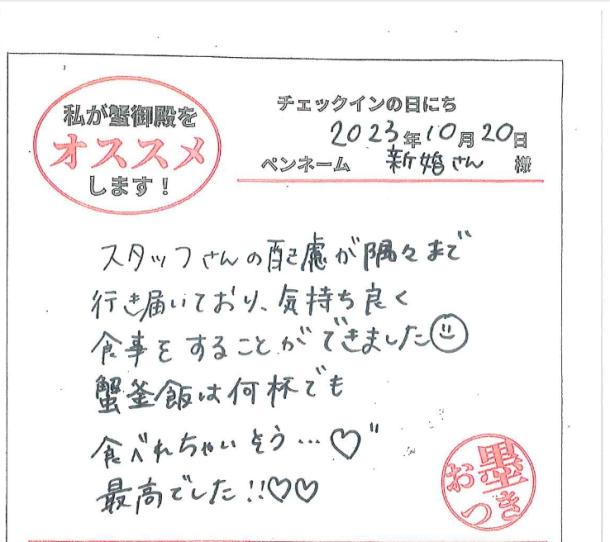 私が蟹御殿を
オススメ
します！
チェックインの日にち
2023年10月20日
ペンネーム 新婚さん 様
スタッフさんの配慮が隅々まで
行き届いており、気持ち良く
食事をすることができました
蟹釜飯は何杯でも
食べれちゃいそう…♡
最高でした!!♡♡
お墨
つき